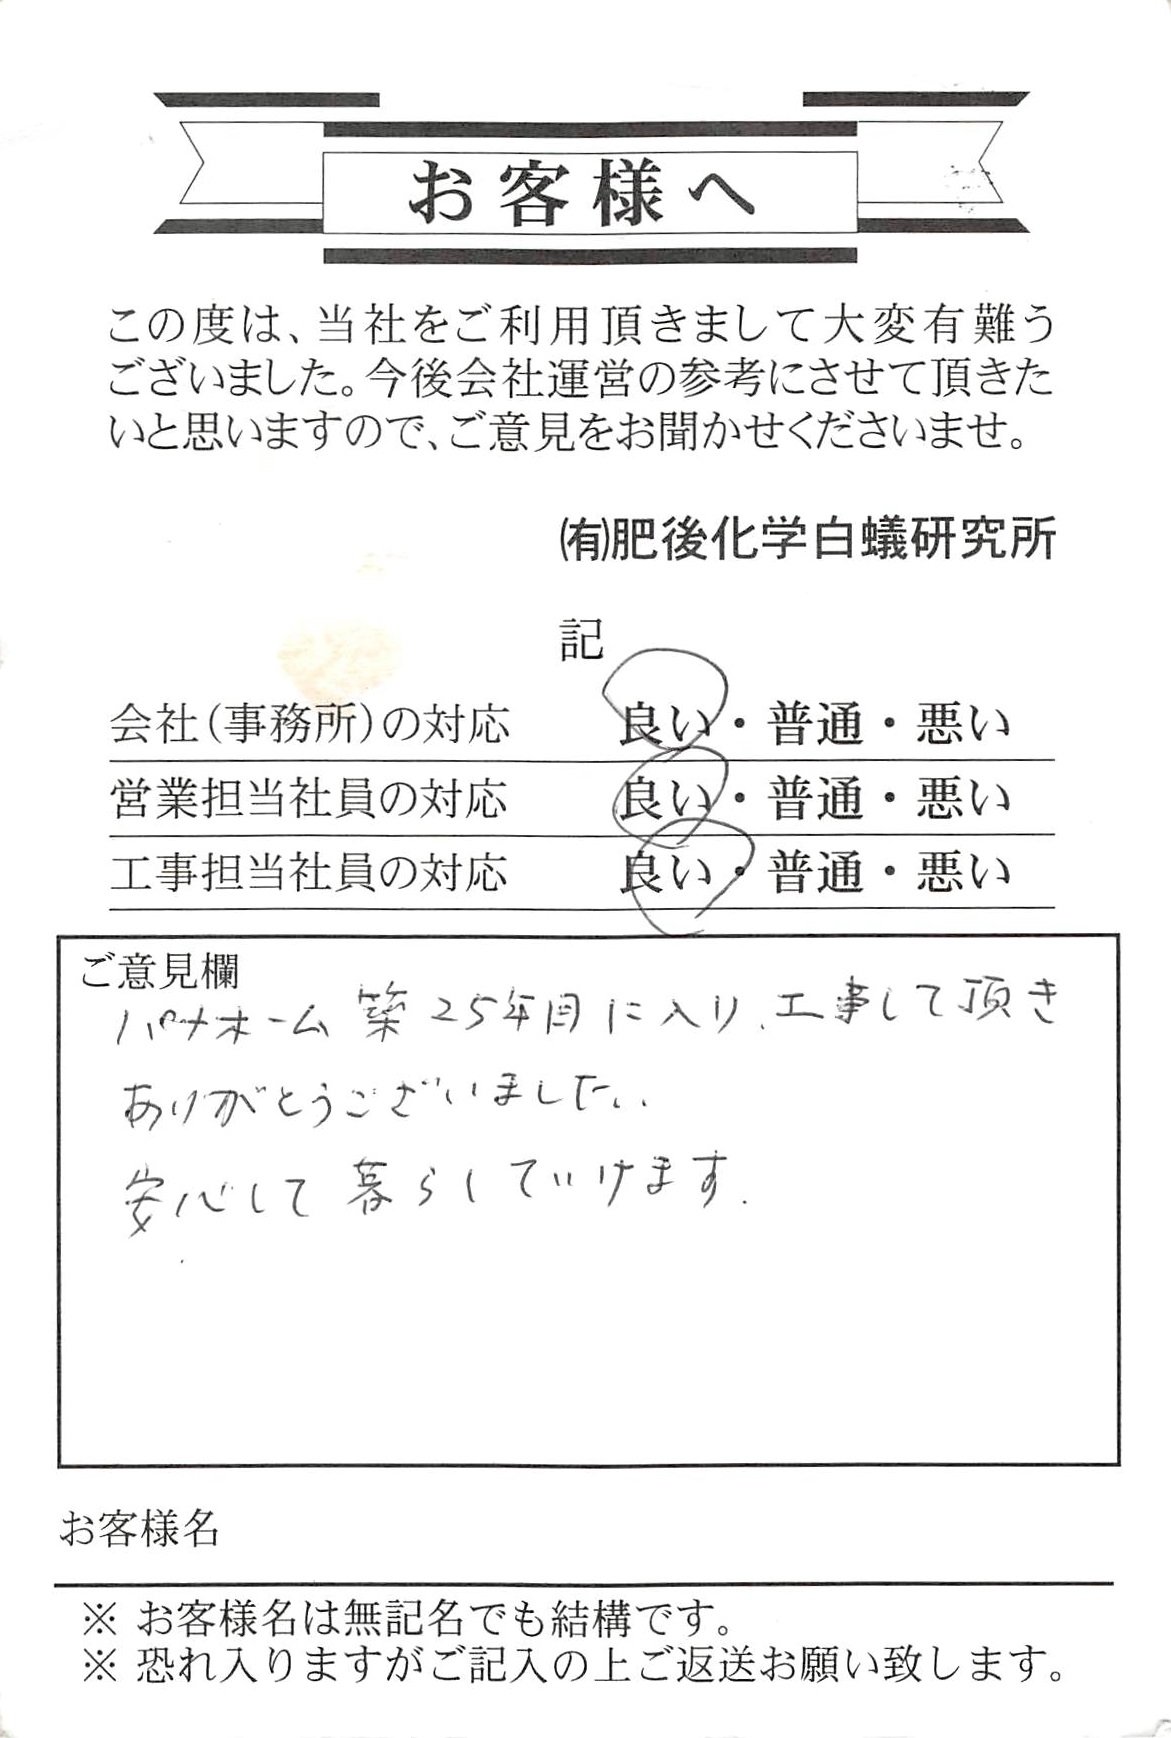 お客様へ
この度は、当社をご利用頂きまして大変有難う
ございました。今後会社運営の参考にさせて頂きた
いと思いますので、ご意見をお聞かせくださいませ。
㈲肥後化学白蟻研究所
記
会社(事務所)の対応 良い・普通・悪い
営業担当社員の対応 良い・普通・悪い
工事担当社員の対応 良い・普通・悪い
ご意見欄
パナホーム築25年目に入り、工事して頂き
ありがとうございました。
安心して暮らしていけます.
お客様名
※ お客様名は無記名でも結構です。
※ 恐れ入りますがご記入の上ご返送お願い致します。